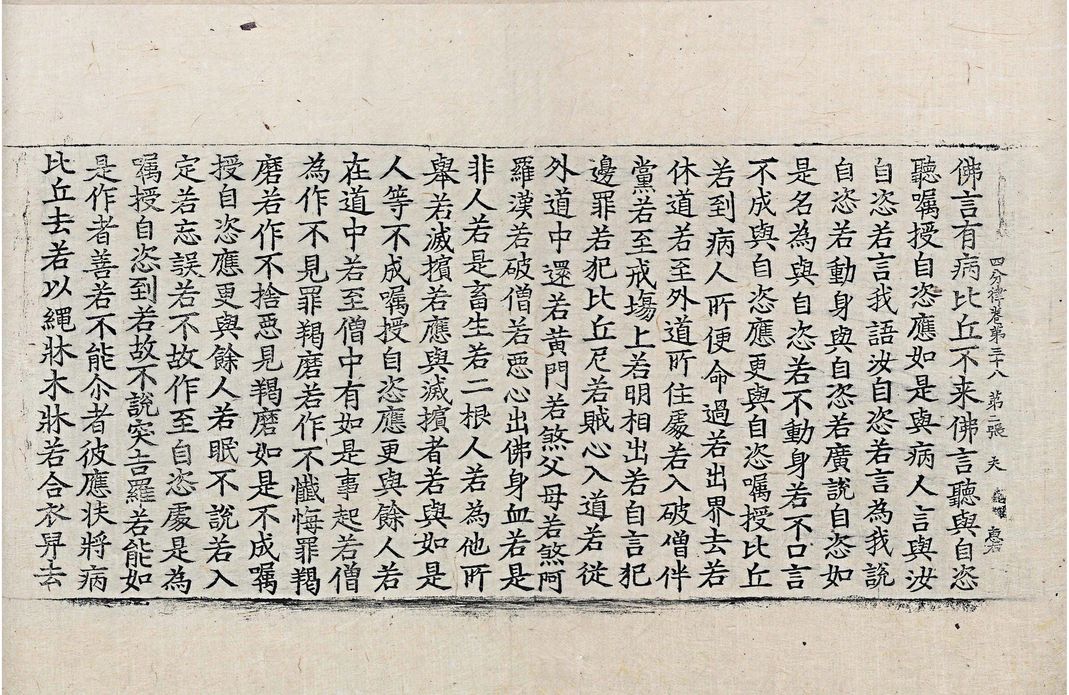 四分律卷第三十八 第二張 夫
佛言有病比丘不来佛言聽與自恣
聽嘱授自恣應如是與病人言與汝
自恣若言我語汝自恣若言為我說
自恣若動身與自恣若廣說自恣如
是名為與自恣若不動身若不口言
不成與自恣應更與自恣嘱授比丘
若到病人所便命過若出界去若
休道若至外道所住處若入破僧伴
黨若至戒塲上若明相出若自言犯
邊罪若犯比丘尼若賊心入道若從
外道中還若黄門若煞父母若煞阿
羅漢若破僧若惡心出佛身血若是
非人若是畜生若二根人若為他所
舉若滅擯若應與滅擯者若與如是
人等不成嘱授自恣應更與餘人若
在道中若至僧中有如是事起若僧
為作不見罪羯磨若作不懺悔罪羯
磨若作不捨惡見羯磨如是不成嘱
授自恣應更與餘人若眠不說若入
定若忘誤若不故作至自恣處是為
嘱授自恣到若故不說突吉羅若能如
是作者善若不能尒者彼應扶將病
比丘去若以繩牀木牀若合衣舁去